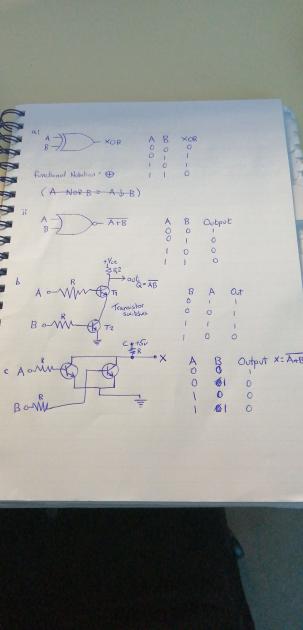 a)
A
B
XOR
A B XOR
0 0 0
0 1 1
1 0 1
1 1 0
Functional Notation = ⊕
ii
A
B
A+B
A B Output
0 0 1
0 1 0
1 0 0
1 1 0
b
+Vcc
R2
out
Q = AB
A R T1
Transistor
B R T2
B A Out
0 0 1
0 1 1
1 0 1
1 1 0
C +5v
R
X
c A R
B R
A B Output X = A+B
0 0 1
0 1 0
1 0 0
1 1 0